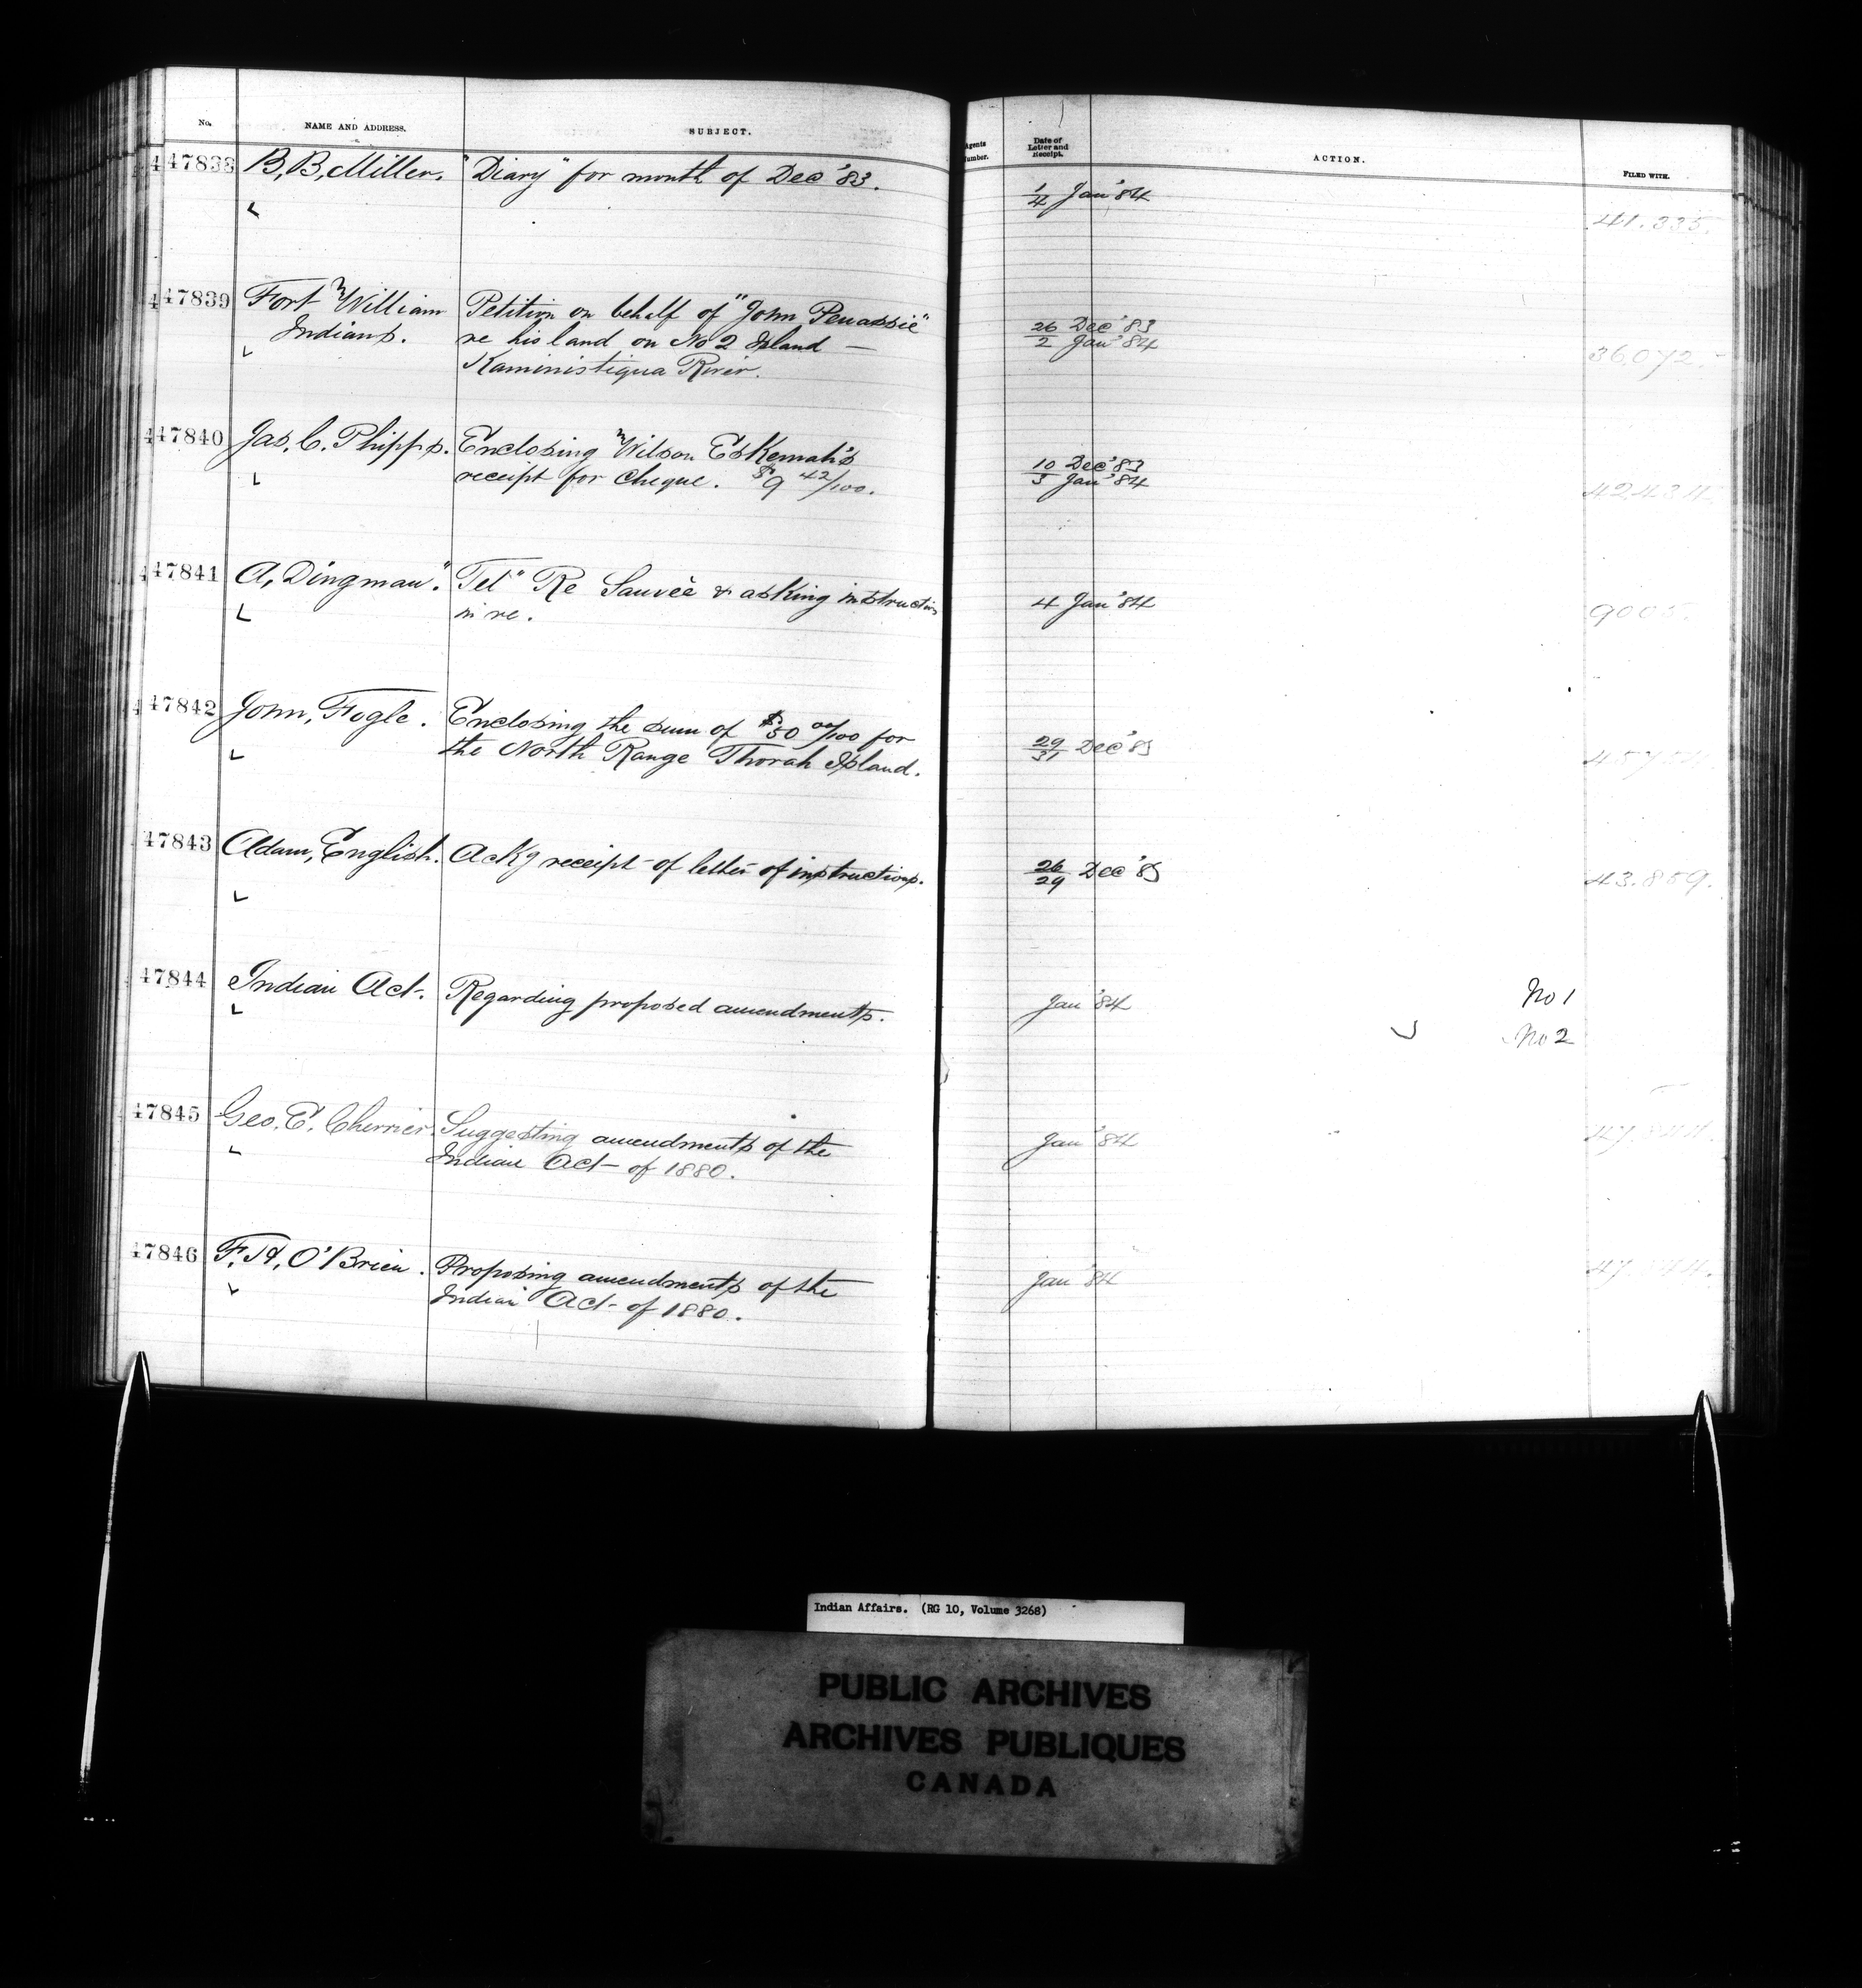 No. NAME AND ADDRESS. SUBJECT. Agents Number. Date of Letter and Receipt. ACTION. FILED WITH.
47838 B. B. Miller. "Diary" for month of Dec '83. 1/4 Jan '84 41.335.
47839 Fort William Indians. Petition on behalf of "John Penassie" 26 Dec '83
re his land on No 2 Island — 2 Jan '84 36072.
Kaministiqua River.
47840 Jas. C. Phipps. Enclosing Wilson EsKemah's 10 Dec '83
receipt for cheque. $9 42/100. 3 Jan '84 42434
47841 A, Dingman. "Tel" Re Sauvèe & asking instructions 4 Jan '84 9005.
in re.
47842 John, Fogle. Enclosing the sum of $50 00/100 for
the North Range Thorah Island. 29/31 Dec '83
47843 Adam, English. Ackg receipt of letter of instructions. 26/29 Dec '83 43.859.
47844 Indian Act. Regarding proposed amendments. Jan '84 No 1
No 2
47845 Geo. E. Cherrier. Suggesting amendments of the Jan '84 47.844.
Indian Act of 1880.
47846 F. H, O'Brien. Proposing amendments of the Jan '84 47.844.
Indian Act of 1880.
Indian Affairs. (RG 10, Volume 3268)
PUBLIC ARCHIVES
ARCHIVES PUBLIQUES
CANADA